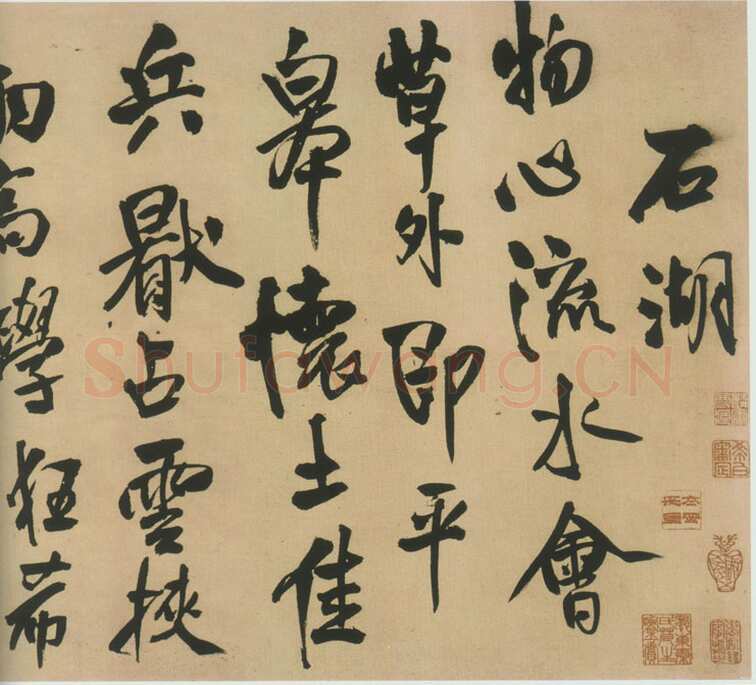 石湖
物心流水會
草外即平
皋懷土佳
兵厭占雲挾
初高學狂希
Shufawang.CN